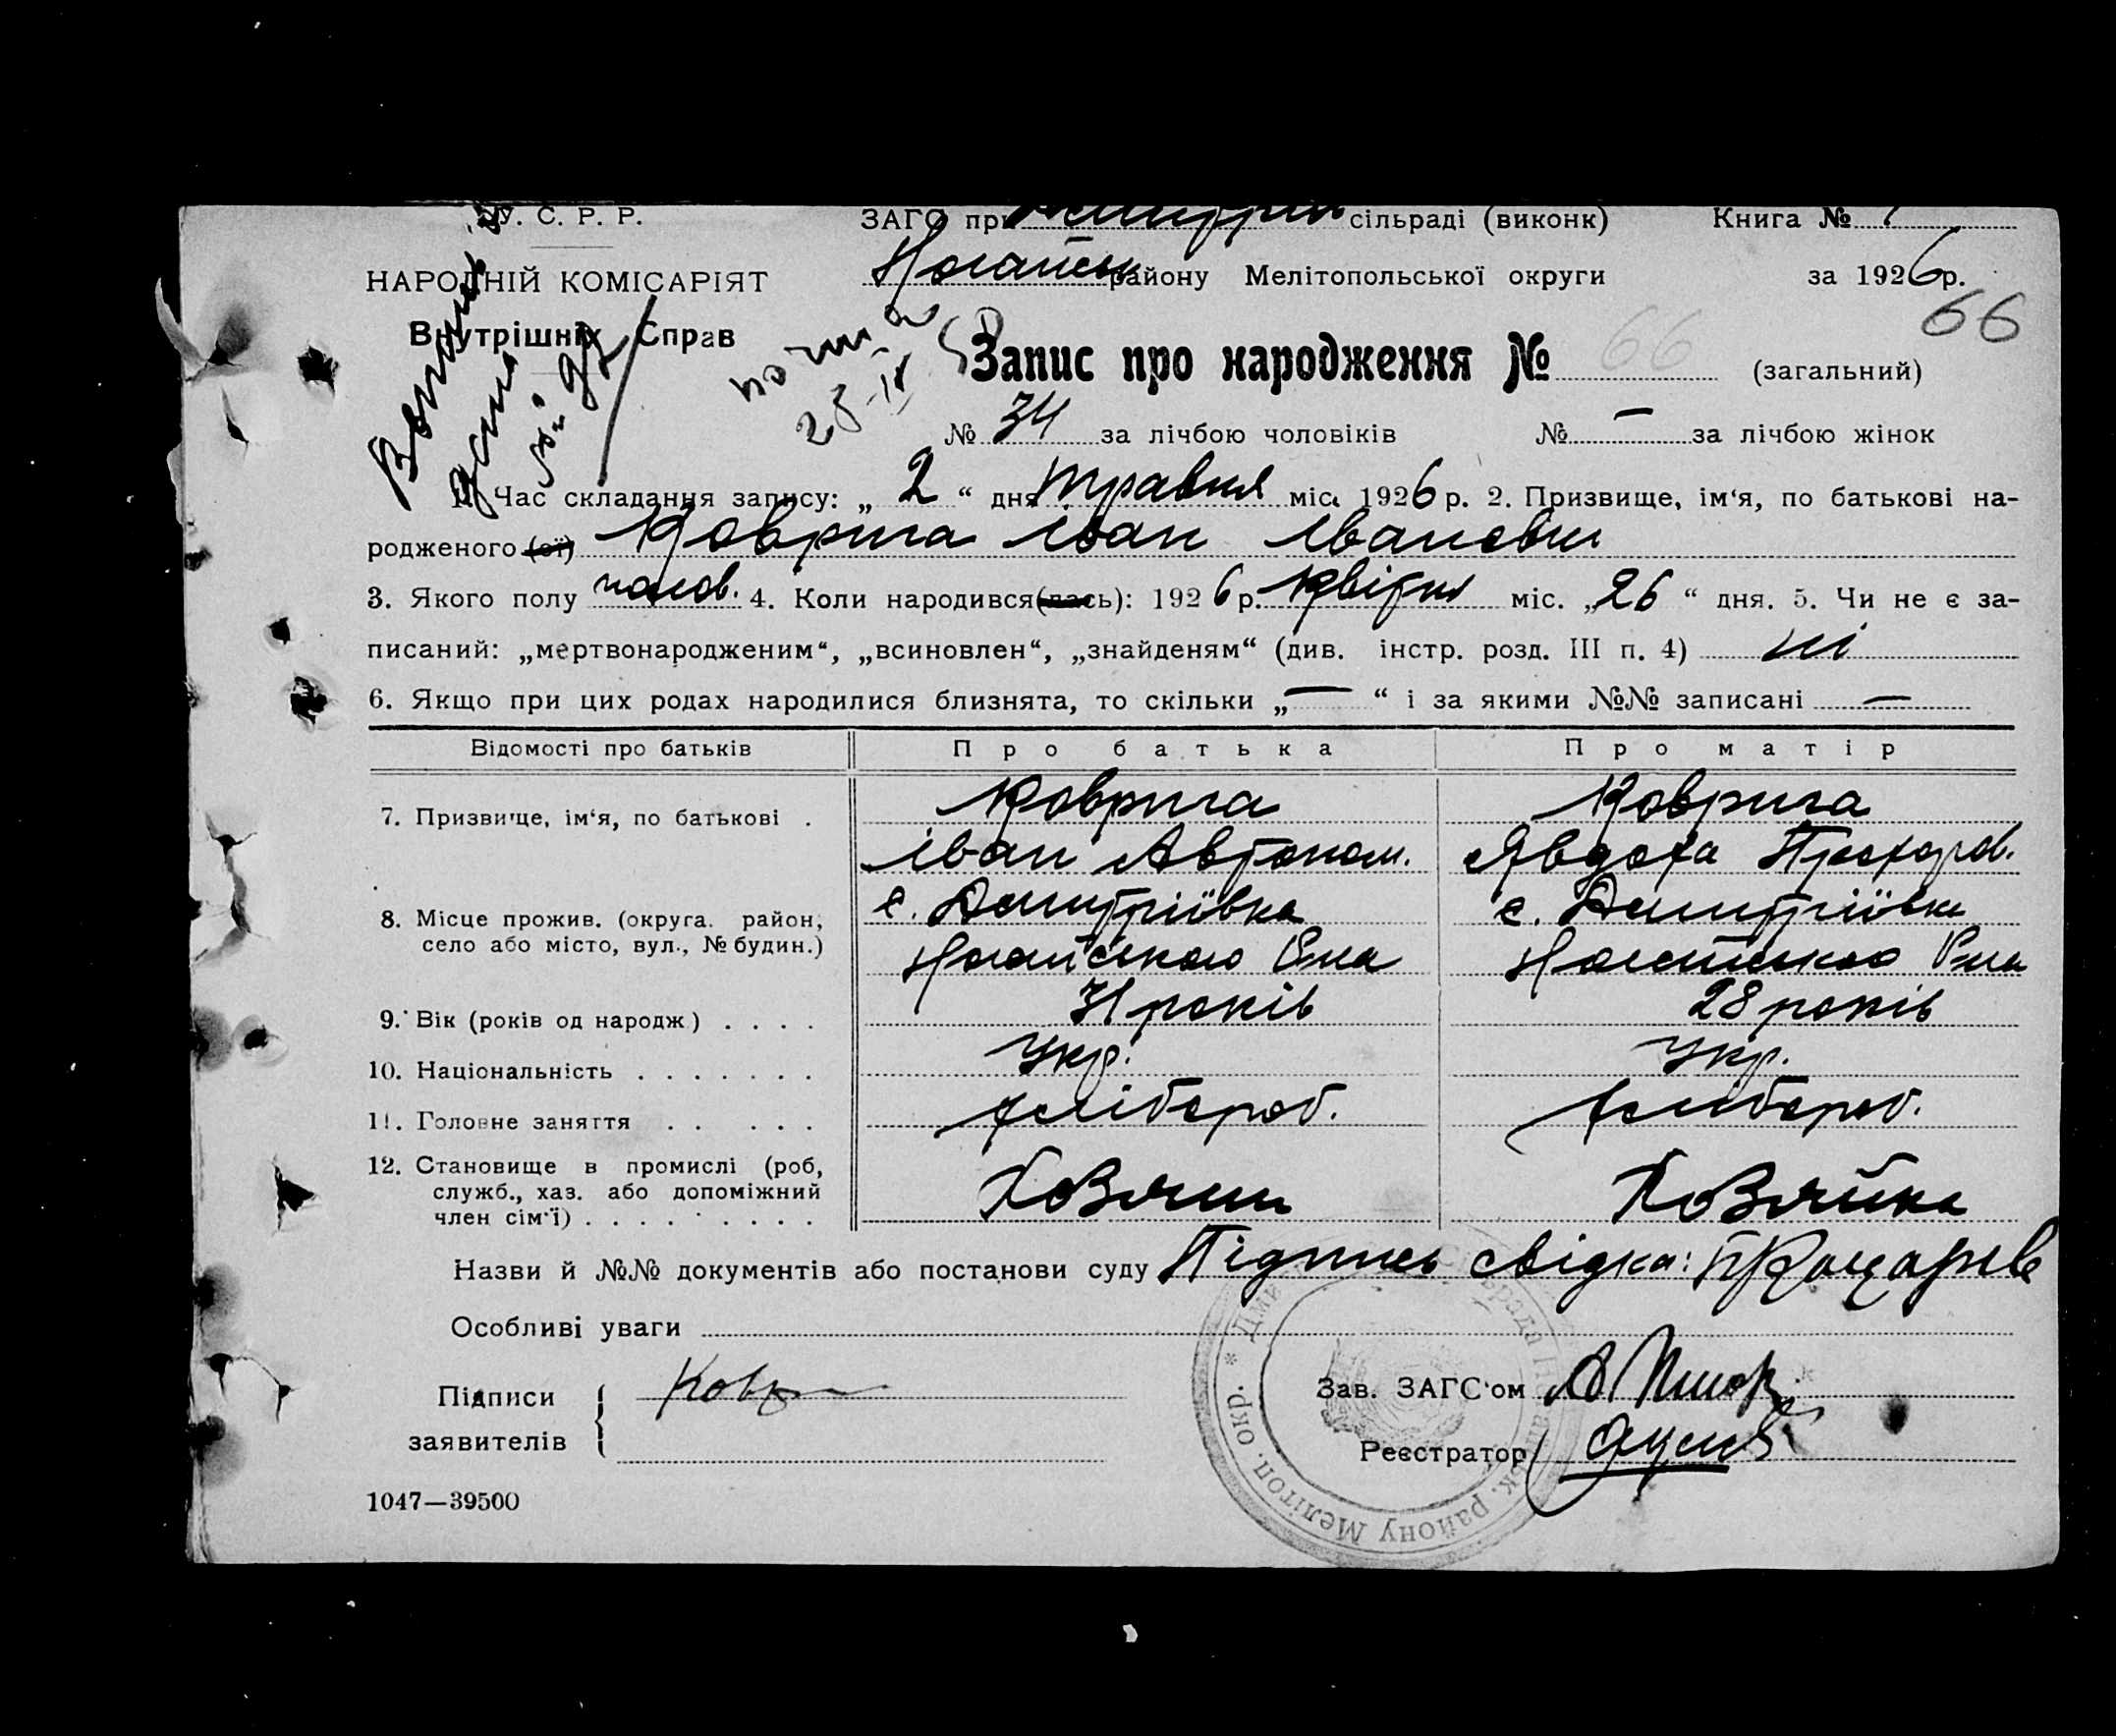 У. С. Р. Р.
ЗАГС при сільраді (виконк) Книга №
НАРОДНІЙ КОМІСАРІЯТ
району Мелітопольської округи за 1926 р.
Внутрішніх Справ
66
Запис про народження № 66 (загальний)
№ 34 за лічбою чоловіків № — за лічбою жінок
1. Час складання запису: „ 2 “ дня травня міс. 1926 р. 2. Призвище, ім'я, по батькові на-
родженого (ої) Коврига Іван Іванович
3. Якого полу чолов. 4. Коли народився(лась): 1926 р. Квітня міс. „26“ дня. 5. Чи не є за-
писаний: „мертвонародженим“, „всиновлен“, „знайденям“ (див. інстр. розд. III п. 4) ні
6. Якщо при цих родах народилися близнята, то скільки „ — “ і за якими №№ записані —
Відомості про батьків Про батька Про матір
7. Призвище, ім‘я, по батькові . Коврига Коврига
Іван Автоном. Явдоха Прохоров.
8. Місце прожив. (округа. район, с. Дмитріївка с. Дмитріївка
село або місто, вул., № будин.) Ногайського Ногайського
9. Вік (років од народж) . . . . 31 років 28 років
10. Національність . . . . . . . Укр. Укр.
11. Головне заняття . . . . . хлібороб. хлібороб.
12. Становище в промислі (роб,
служб., хаз. або допоміжний Хозяин Хозяйка
член сім'ї) . . . . . . . . .
Назви й №№ документів або постанови суду Підпись свідка:
Особливі уваги
Підписи
заявителів
Зав. ЗАГС'ом
Реєстратор
району Мелітоп. окр. *
1047—39500